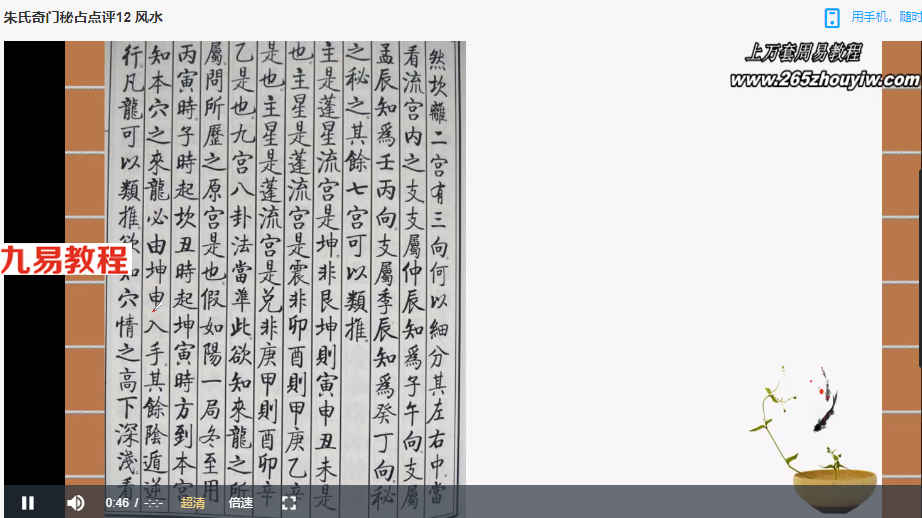 朱氏奇门秘占点评12 风水
用手机，随时
上万套周易教程
www.265zhouyiw.com
然坎離二宫有三向何以細分其左右中當
看流宫内之支支屬仲辰知爲子午向支屬
孟辰知爲壬丙向支屬季辰知爲癸丁向秘
之秘之其餘七宫可以類推
主是蓬星流宫是坤非艮坤則寅申丑未是
也主星是蓬流宫是震非卯酉則甲庚乙辛
是也主星是蓬流宫是兑非庚甲則酉卯辛
乙是也九宫八卦法當準此欲知來龍之所
屬問所歷之原宫是也假如陽一局冬至用
丙寅時子時起坎丑時起坤寅時方到本宫
知本穴之來龍必由坤申入手其餘陰遁逆
行凡龍可以類推欲知穴情之高下深淺看
九易教程
0:46 / -:-
超清
倍速